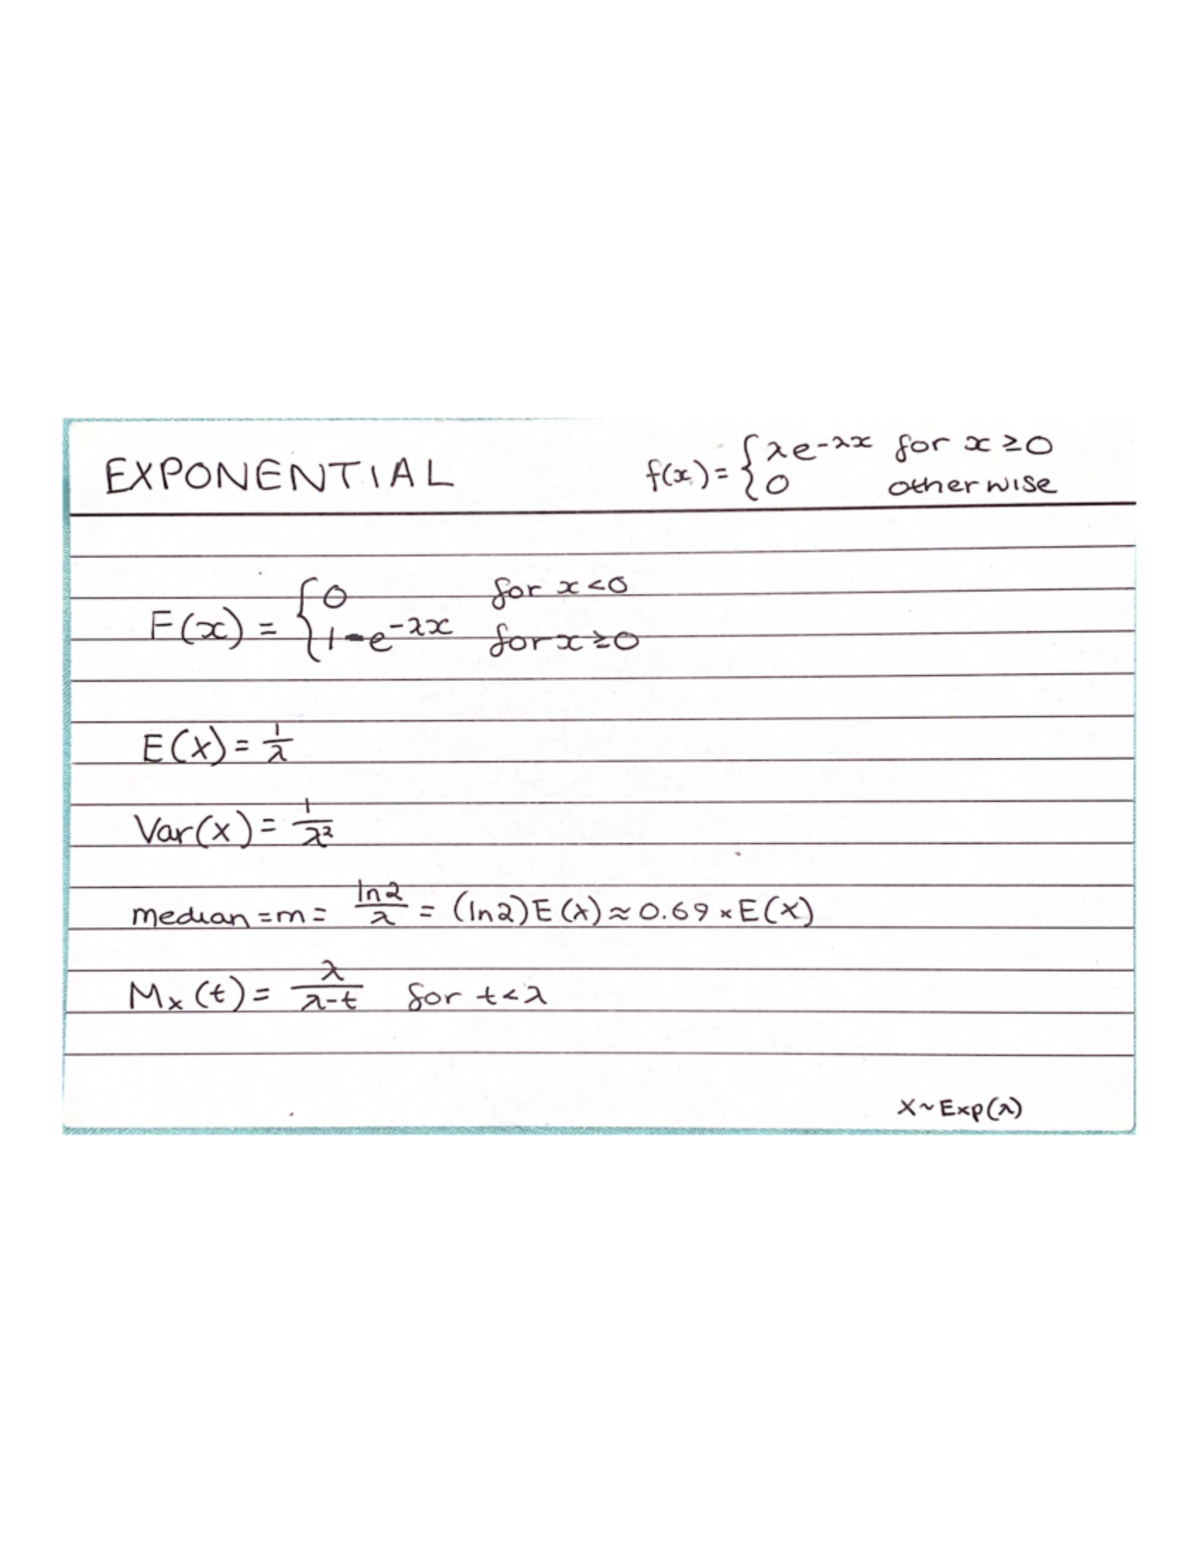 EXPONENTIAL
f(x) = { λe^{-λx} for x ≥ 0
0 otherwise
F(x) = { 0 for x < 0
1 - e^{-λx} for x ≥ 0
E(X) = 1/λ
Var(X) = 1/λ²
median = m = ln2/λ = (ln2)E(X) ≈ 0.69 × E(X)
Mₓ(t) = λ/(λ-t) for t < λ
X ~ Exp(λ)